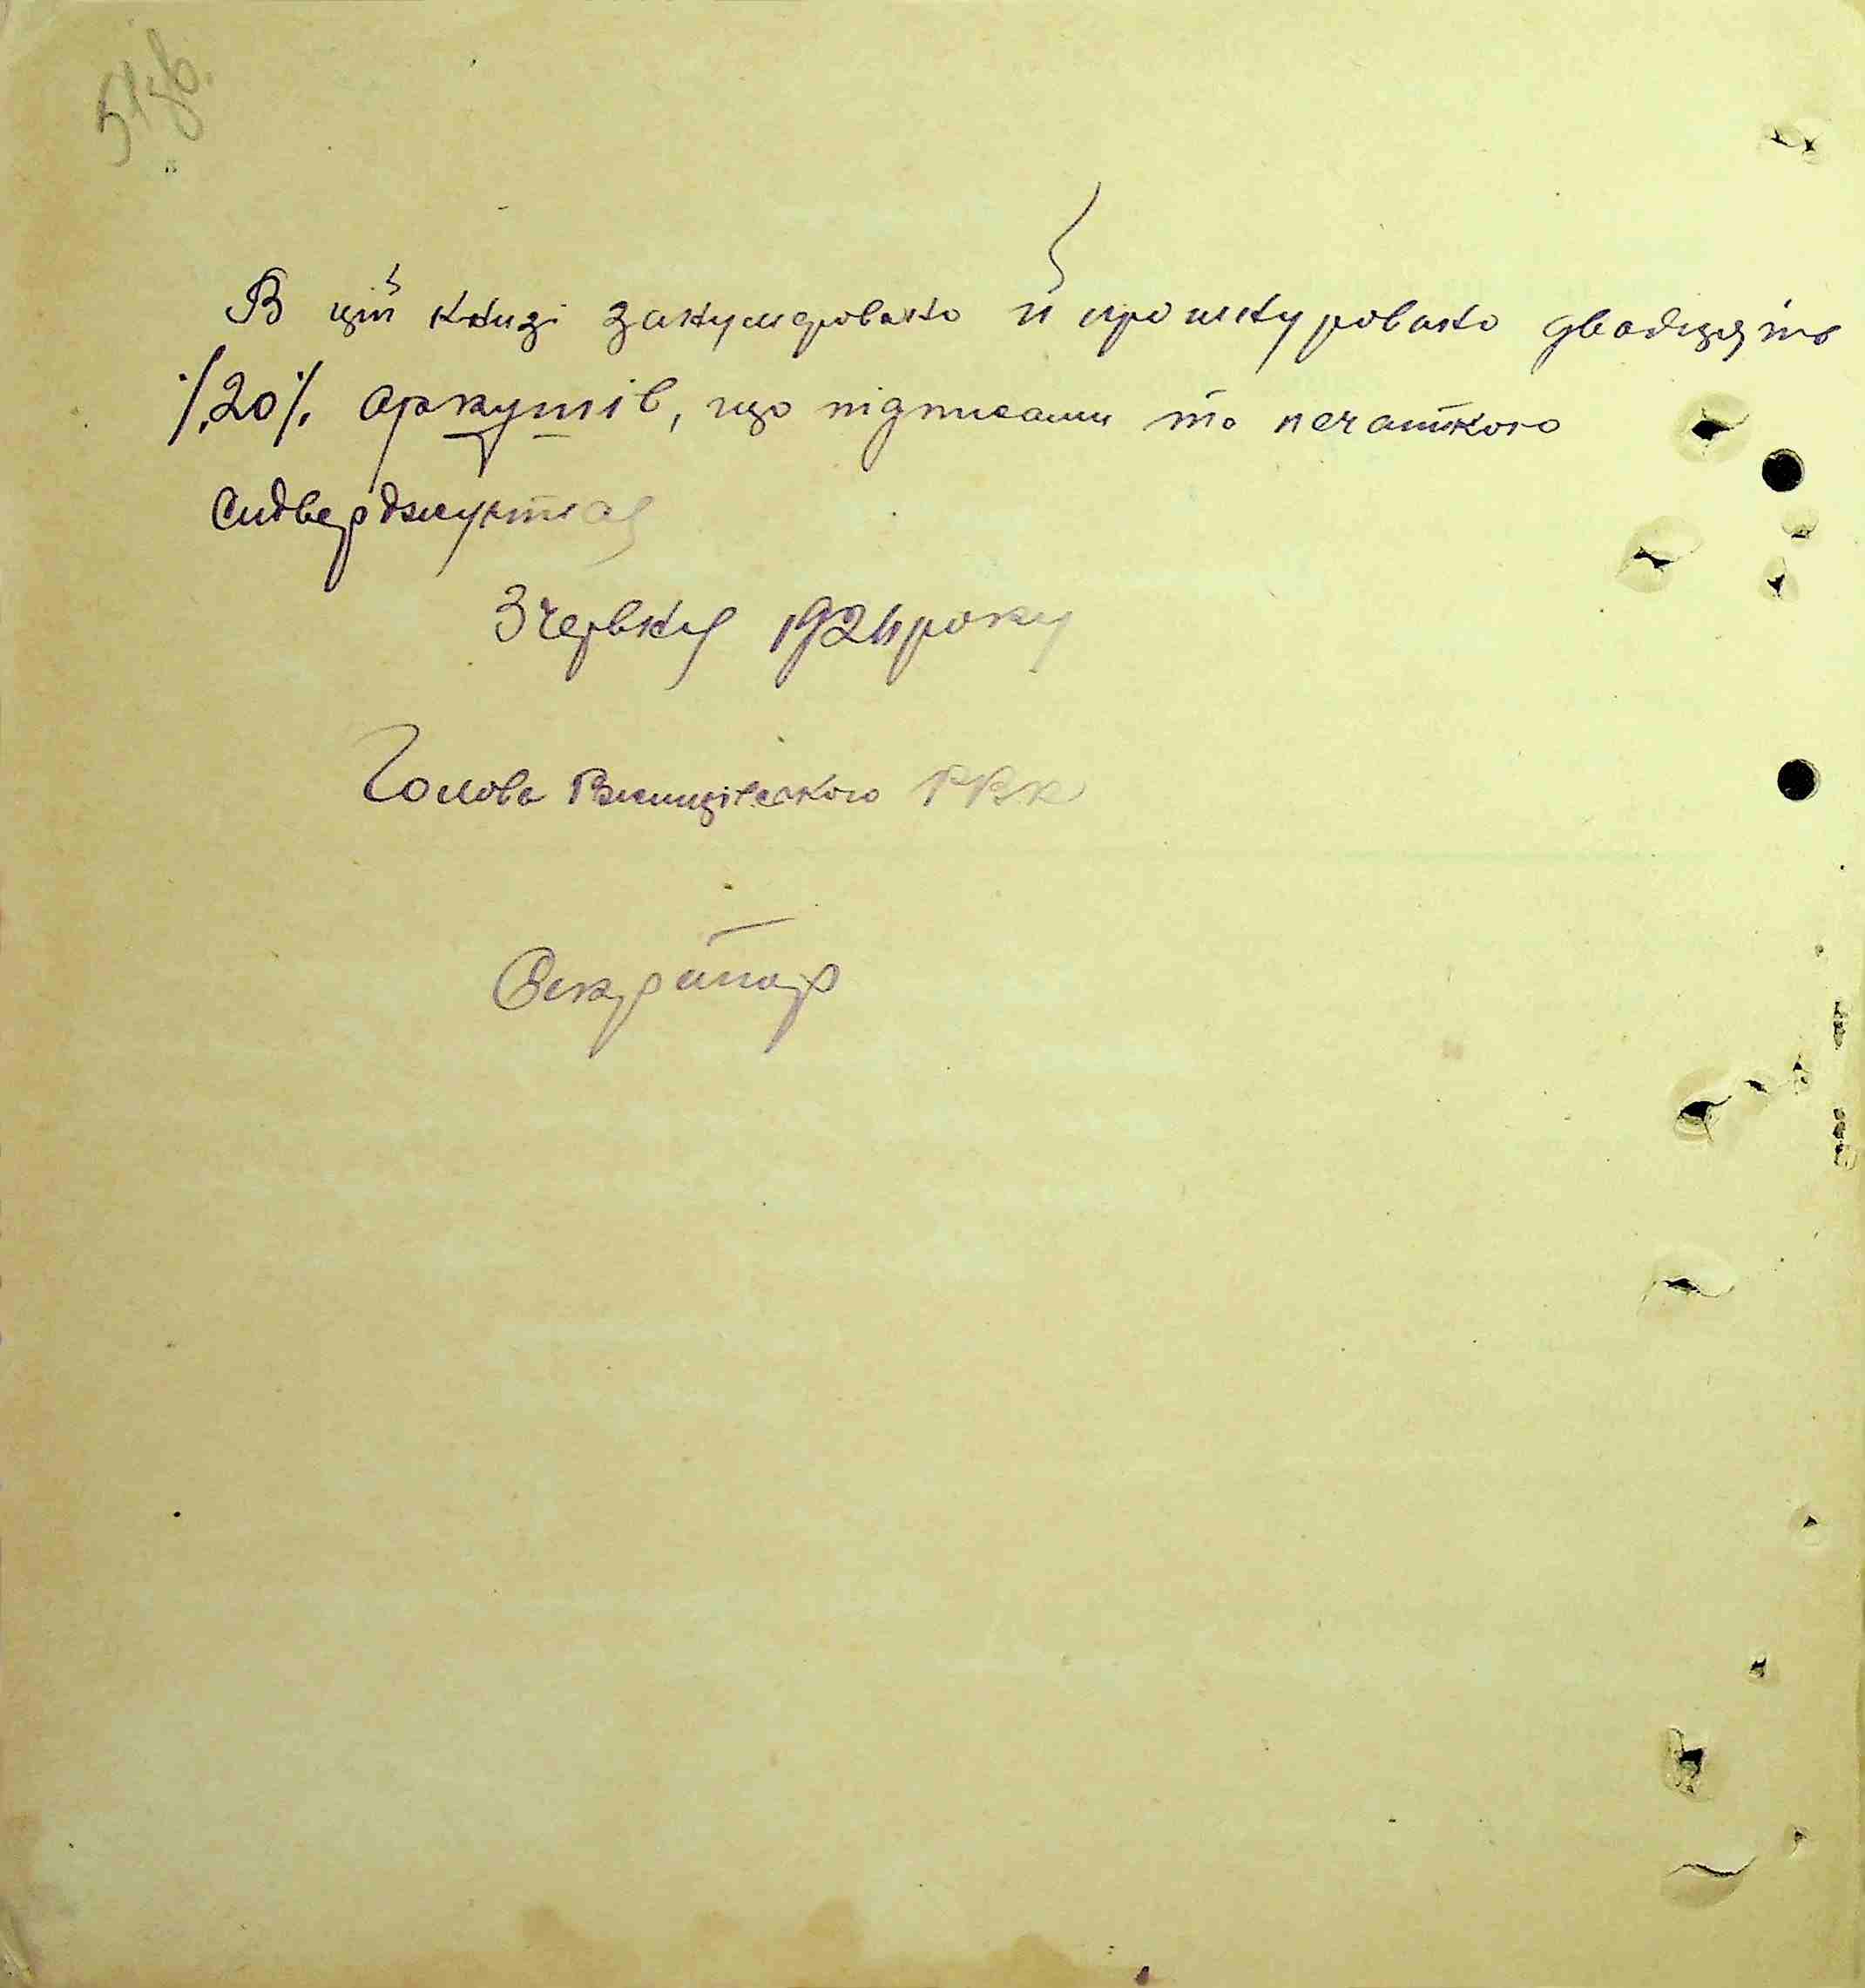 51 зв.
В цій книзі занумеровано й прошнуровано двадцять
/20/ аркушів, що підписами та печаткою
3 червня 1924 року
Голова РВК
Секретар